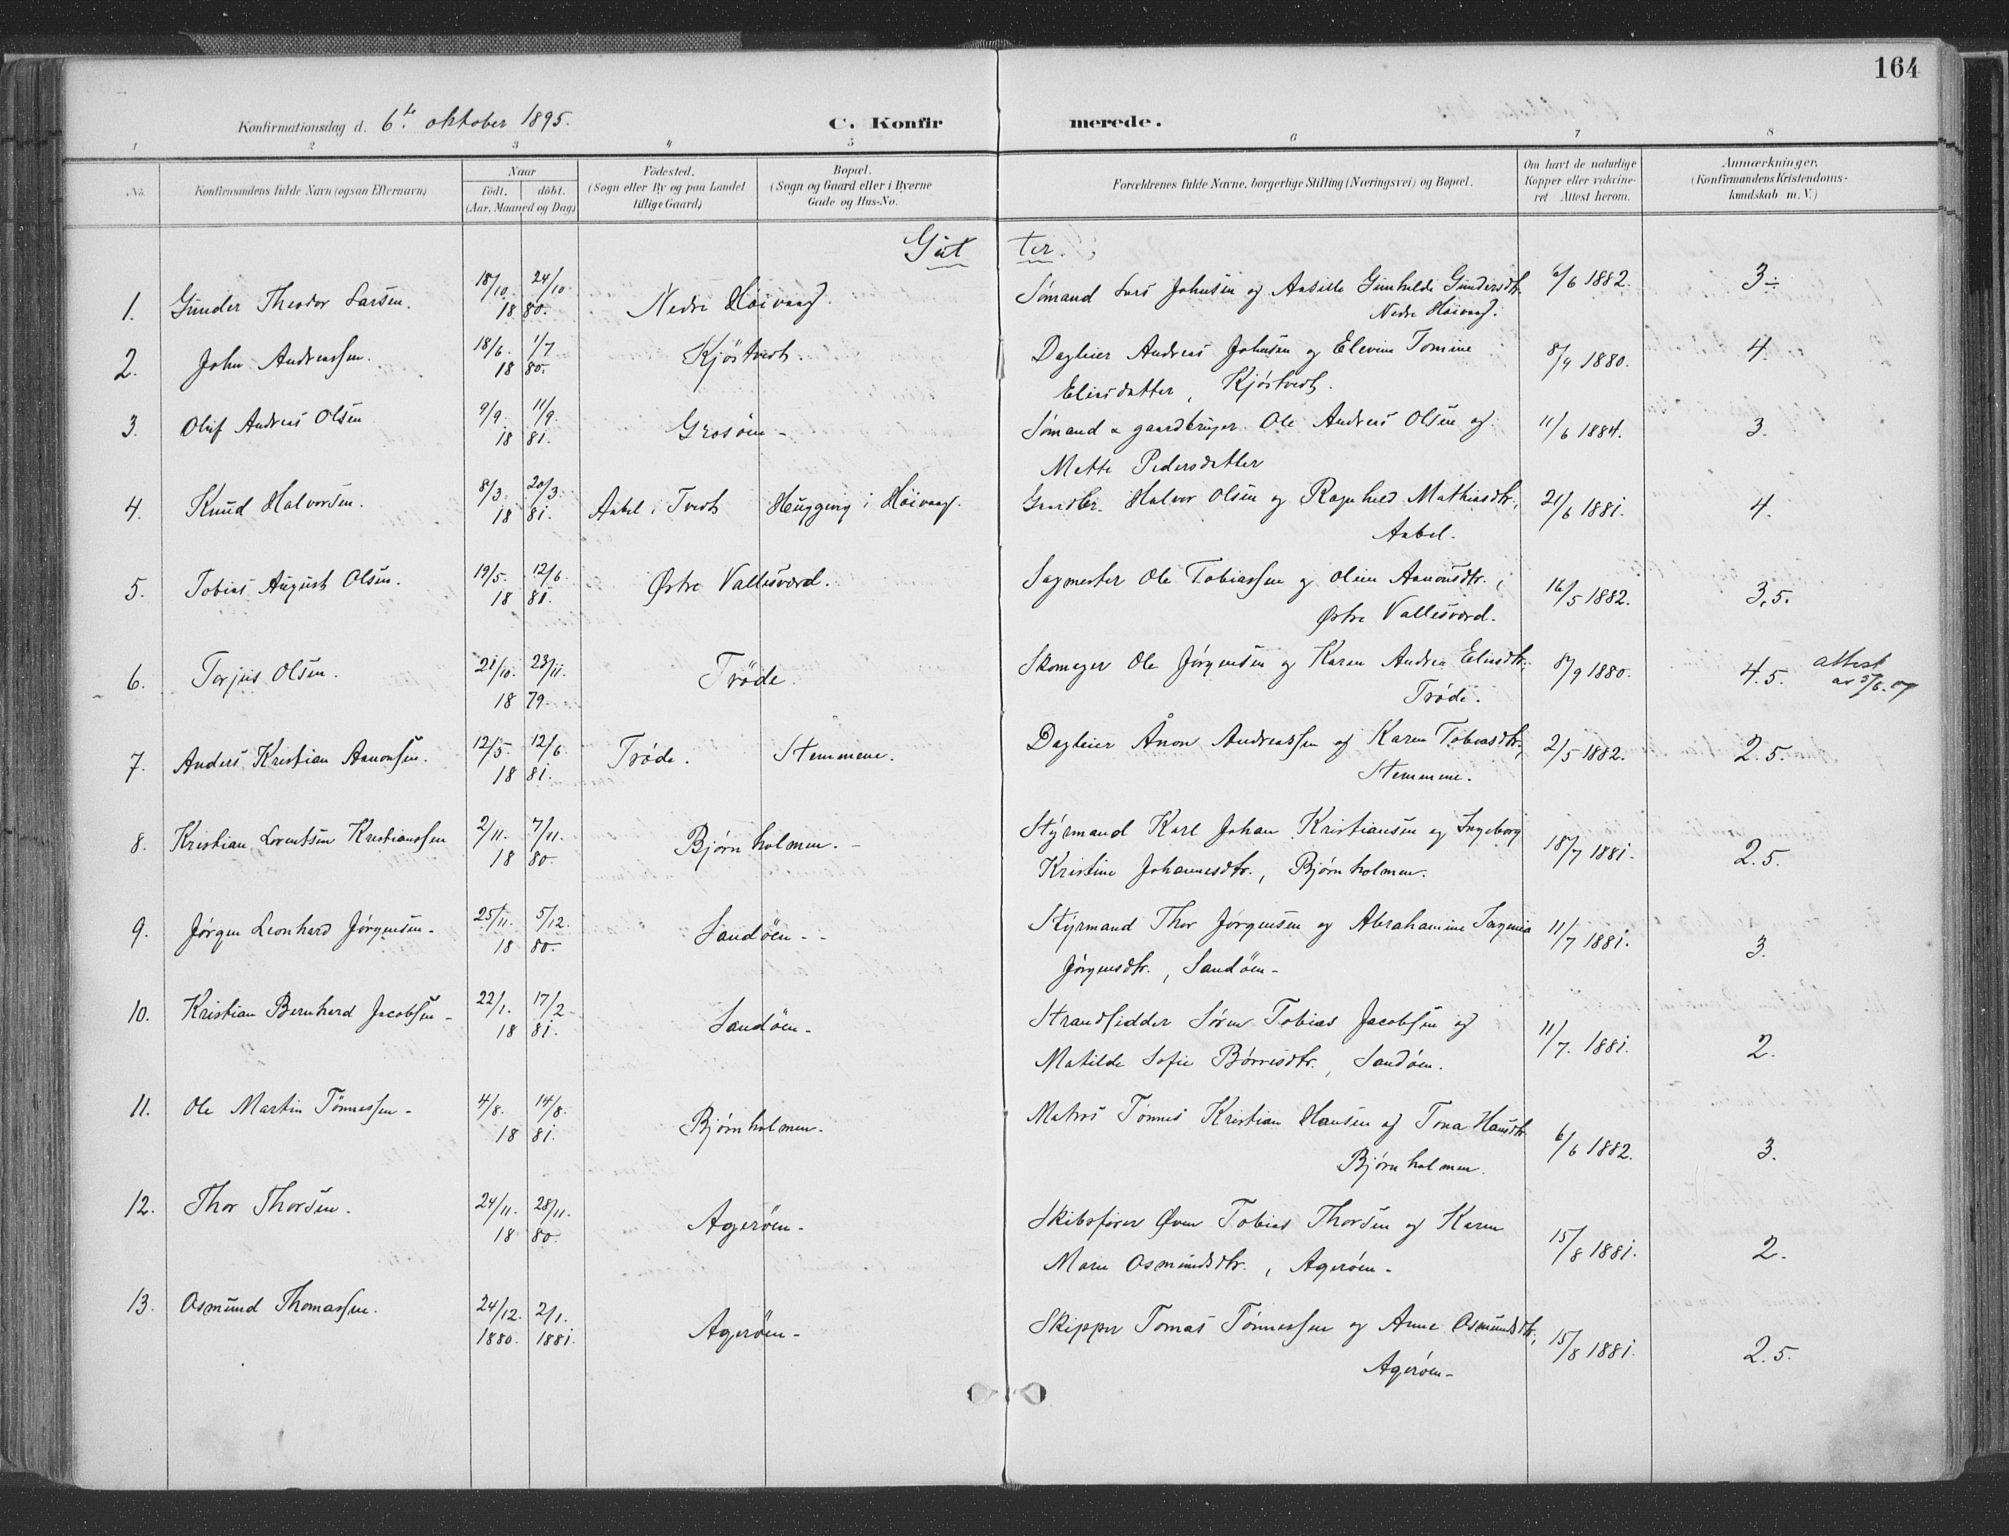 164
Konfirmationsdag d. 6te oktober 1895. C. Konfir merede.
1 2 3 4 5 6 7 8
No. Konfirmandens fulde Navn (ogsaa Efternavn) Naar Födt. döbt. (Aar, Maaned og Dag) Födested. (Sogn eller By og paa Landet tillige Gaard) Bopæl. (Sogn og Gaard eller i Byerne Gade og Hus-No. Forældrenes fulde Navne, borgerlige Stilling (Næringsvei) og Bopæl. Om havt de naturlige Kopper eller vaccineret. Attest herom. Anmærkninger. (Konfirmandens Kristendomskundskab m. V.)
Gut ter.
1. Gunder Theodor Larsen. 18/10. 24/10. Nedre Höivaag. Sömand Lars Johnsen og Aasille Gunhilde Gundersdtr. 6/6 1882. 3÷
18 80. Nedre Höivaag.
2. John Andreassen. 18/6. 1/7 Kjöstvedt. Dagleier Andreas Johnsen og Elevine Tomine 8/9 1880. 4
18 80. Eliasdatter, Kjöstvedt.
3. Oluf Andreas Olsen 9/9. 11/9. Grosöen - Sömand & gaardbruger Ole Andreas Olsen og 11/6 1884. 3.
18 81. Mette Pedersdatter
4. Knud Halvorsen. 8/3. 20/3. Aabel i Tvedt Heuggerig i Höivaag. Gardbr. Halvor Olsen og Ragnhild Mathiasdtr, 21/6 1881. 4.
18 81. Aabel.
5. Tobias August Olsen. 19/5. 12/6. Østre Vallesværd. Sagmester Ole Tobiassen og Oline Aanonsdtr. 16/5 1882. 3,5.
18 81. Østre Vallesværd.
6. Torjus Olsen. 21/10. 23/11. Tröde. Skomager Ole Jörgensen og Karen Andrea Eliasdtr. 8/9 1880. 4.5. attest
18 79. Tröde. av 5/6.07
7. Anders Kristian Aanonsen. 12/5. 12/6 Tröde. Stemmene. Dagleier Ånon Andreassen og Karen Tobiasdtr, 2/5 1882. 2.5.
18 81. Stemmene.
8. Kristian Lorentsen Kristianssen 2/11. 7/11. Bjørnholmen. - Styrmand Karl Johan Kristiansen og Ingeborg 18/7 1881. 2.5.
18 80. Kristine Johannesdtr., Bjørnholmen.
9. Jörgen Leonhard Jörgensen - 25/11. 5/12. Sandöen - - Styrmand Thor Jörgensen og Abrahamine 11/7 1881. 3.
18 80. Jörgensdtr., Sandöen -
10. Kristian Bernhard Jacobsen - 22/1. 17/2 Sandöen - Strandsidder Sören Tobias Jacobsen og 11/7. 1881. 2.
18 81. Matilde Sofie Börresdtr., Sandöen.
11. Ole Martin Tönnessen - 4/8. 14/8. Bjørnholmen. Matros Tönnes Kristian Hansen og Tona Hansdtr 6/6 1882. 3.
18 81. Bjørnholmen.
12. Thor Thorsen. 24/11. 28/11. Ageröen - Skibsförer Øven Tobias Thorsen og Karen 15/8 1881. 2.
18 80. Marie Osmundsdtr., Ageröen -
13. Osmund Thomassen. 24/12. 2/1. Ageröen - Skipper Tomas Tönnessen og Anne Osmundsdtr, 15/8 1881. 2.5.
1880. 1881. Ageröen -